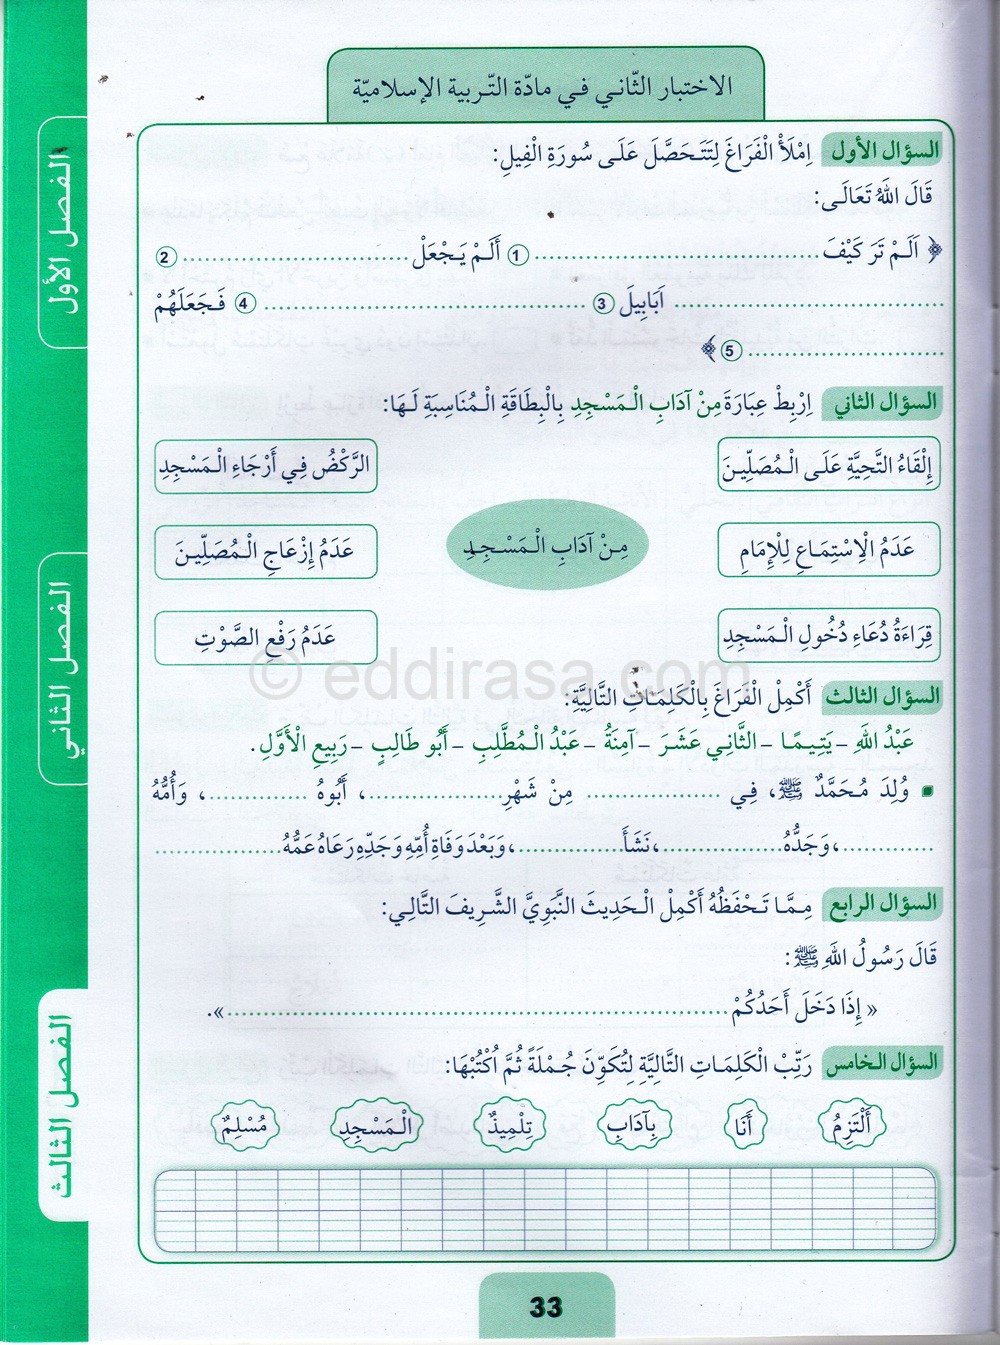 الاختبار الثّاني في مادّة التّربية الإسلاميّة
السؤال الأول اِمْلَأْ الْفَرَاغَ لِتَتَحَصَّلَ عَلَى سُورَةِ الْفِيلِ:
قَالَ اللهُ تَعَالَى:
﴿ اَلَمْ تَرَ كَيْفَ .......... 1 أَلَمْ يَجْعَلْ .......... 2
.......... اَبَابِيلَ 3 .......... 4 فَجَعَلَهُمْ
.......... 5 ﴾
السؤال الثاني اِرْبِطْ عِبَارَةَ مِنْ آدَابِ الْمَسْجِدِ بِالْبِطَاقَةِ الْمُنَاسِبَةِ لَهَا:
إِلْقَاءُ التَّحِيَّةِ عَلَى الْمُصَلِّينَ
الرَّكْضُ فِي أَرْجَاءِ الْمَسْجِدِ
عَدَمُ الْاِسْتِمَاعِ لِلْإِمَامِ
مِنْ آدَابِ الْمَسْجِدِ
عَدَمُ إِزْعَاجِ الْمُصَلِّينَ
قِرَاءَةُ دُعَاءِ دُخُولِ الْمَسْجِدِ
عَدَمُ رَفْعِ الصَّوْتِ
© eddirasa.com
السؤال الثالث أَكْمِلْ الْفَرَاغَ بِالْكَلِمَاتِ التَّالِيَّةِ:
عَبْدُ اللهِ – يَتِيمًا – الثَّانِي عَشَرَ – آمِنَةُ – عَبْدُ الْمُطَّلِبِ – أَبُو طَالِبٍ – رَبِيعِ الْأَوَّلِ.
وُلِدَ مُحَمَّدٌ ﷺ، فِي .......... مِنْ شَهْرِ ..........، أَبُوهُ ..........، وَأُمُّهُ
..........، وَجَدُّهُ ..........، نَشَأَ ..........، وَبَعْدَ وَفَاةِ أُمِّهِ وَجَدِّهِ رَعَاهُ عَمُّهُ ..........
السؤال الرابع مِمَّا تَحْفَظُهُ أَكْمِلْ الْحَدِيثَ النَّبَوِيَّ الشَّرِيفَ التَّالِي:
قَالَ رَسُولُ اللهِ ﷺ:
« إِذَا دَخَلَ أَحَدُكُمْ .......... ».
السؤال الخامس رَتِّبْ الْكَلِمَاتِ التَّالِيَّةِ لِتُكَوِّنَ جُمْلَةً ثُمَّ اُكْتُبْهَا:
أَلْتَزِمُ أَنَا بِآدَابِ تِلْمِيذٌ الْمَسْجِدِ مُسْلِمٌ
33
الفصل الأول
الفصل الثاني
الفصل الثالث